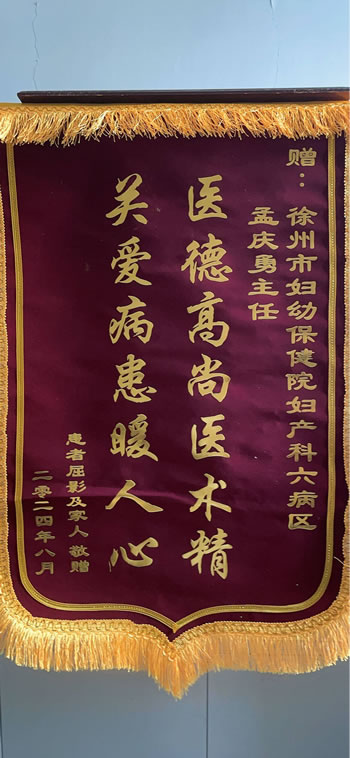 赠：徐州市妇幼保健院妇产科六病区
孟庆勇主任
医德高尚医术精
关爱病患暖人心
患者屈影及家人敬赠
二零二四年八月